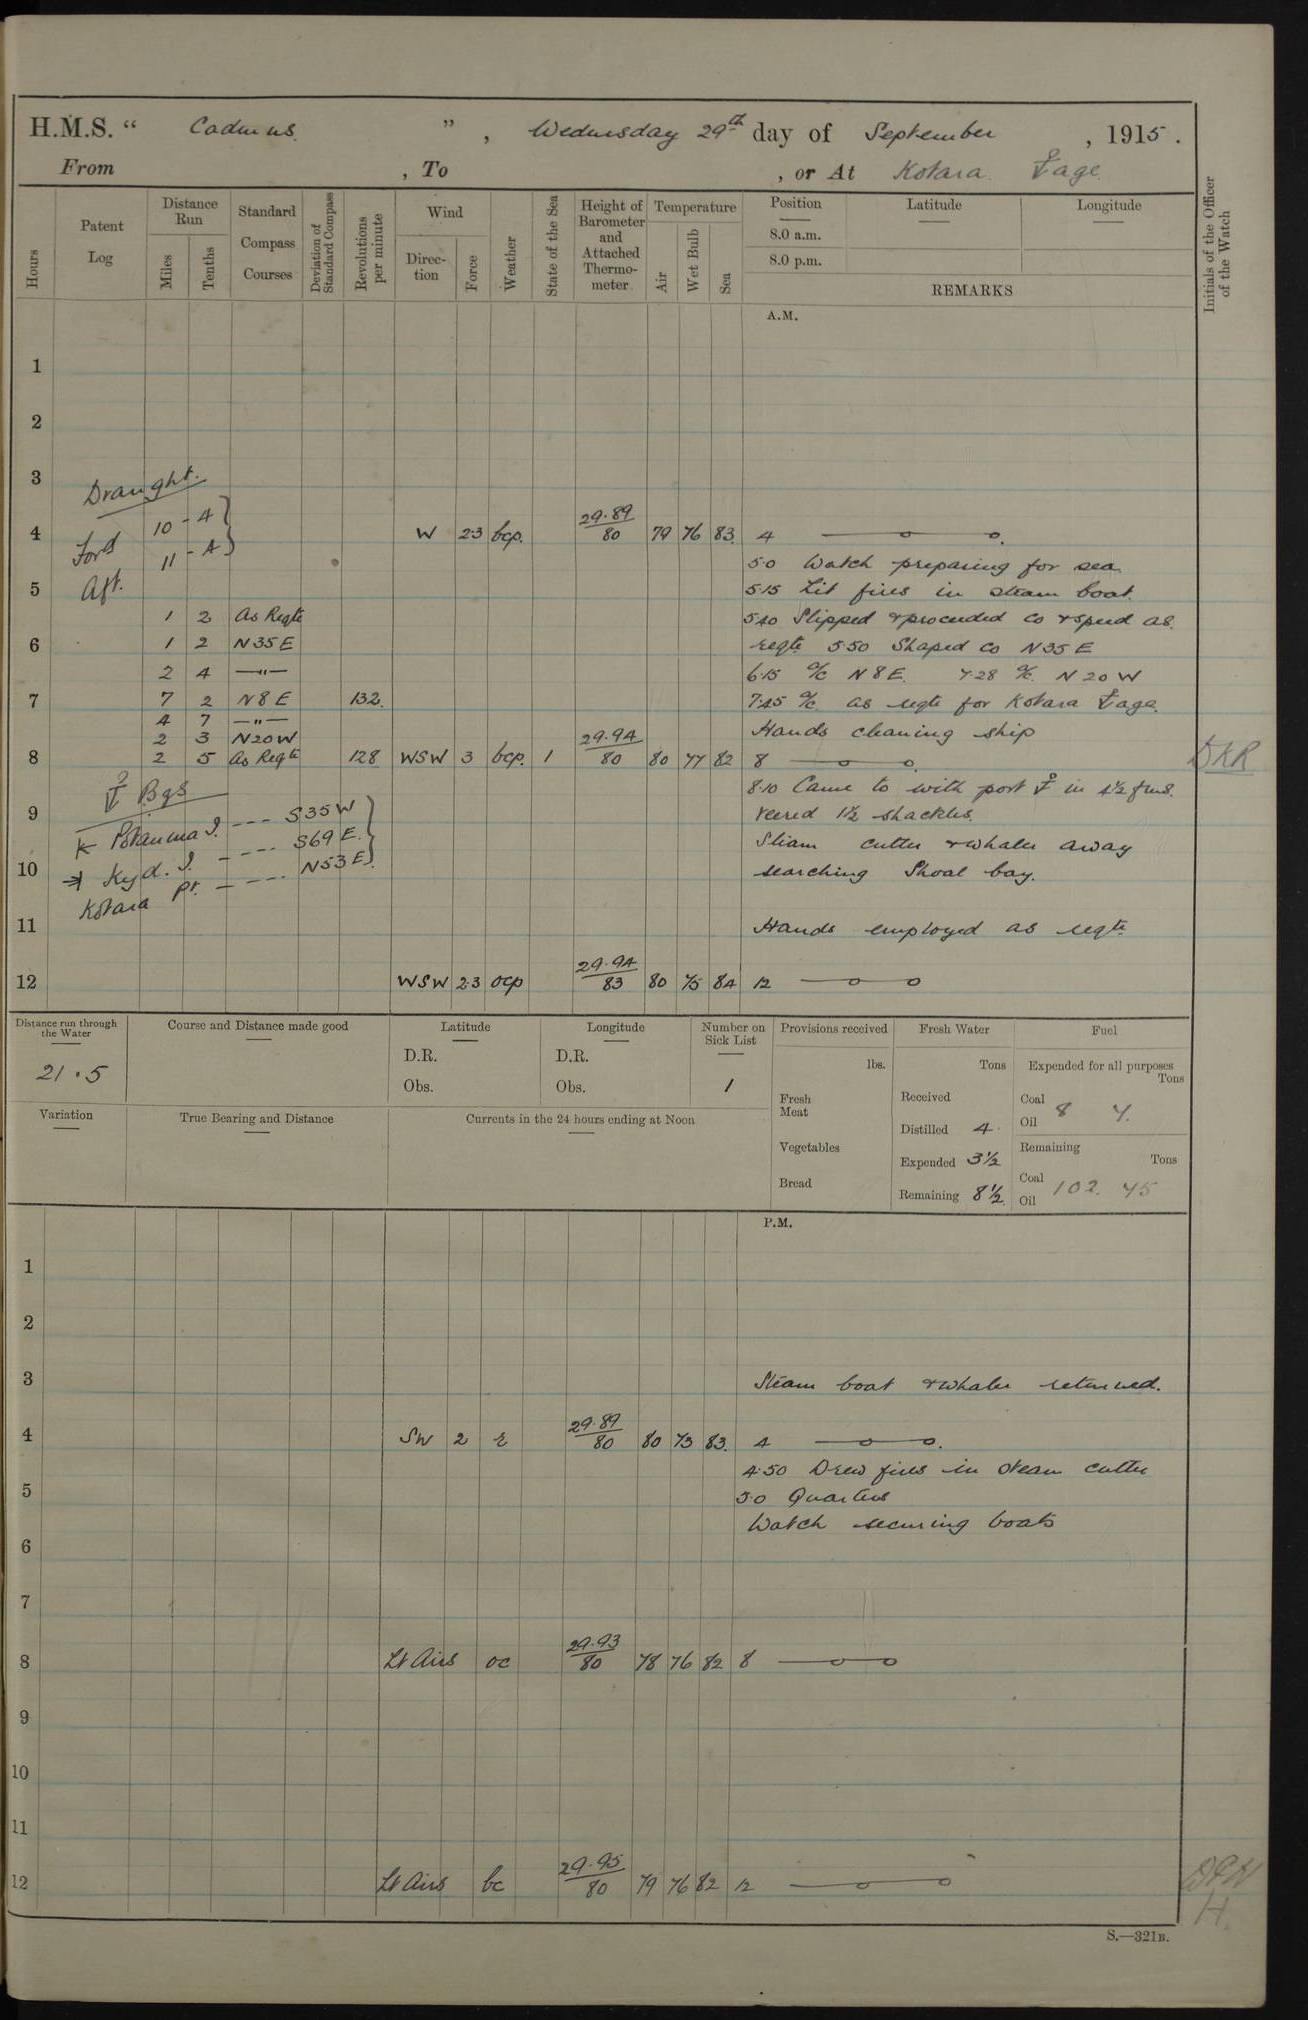 H.M.S. " Cadmus " , Wednesday 29th day of September , 1915 .
From , To , or At Kotara ⚓age
Hours
Patent Log
Distance Run
Miles
Tenths
Standard Compass Courses
Deviation of Standard Compass
Revolutions per minute
Wind
Direction
Force
Weather
State of the Sea
Height of Barometer and Attached Thermometer
Temperature
Air
Wet Bulb
Sea
Position
8.0 a.m.
8.0 p.m.
Latitude
Longitude
REMARKS
Initials of the Officer of the Watch
A.M.
1
2
3
Draught.
Ford 10 - 4 }
Aft. 11 - 4 }
4 W 2.3 bcp. 29.89/80 79 76 83. 4
5.0 Watch preparing for sea.
5 5.15 Lit fires in steam boat.
1 2 As Reqte 5.40 Slipped & proceeded Co & speed as.
6 1 2 N35E reqte 5.50 Shaped Co N35E
2 4 —"— 6.15 a/c N8E. 7.28 a/c. N20W
7 7 2 N8E 132. 7.45 a/c. as reqte for Kotara ⚓age.
4 7 —"—
2 3 N20W Hands cleaning ship
8 2 5 As Reqte 128 WSW 3 bcp. 1 29.94/80 80 77 82 8 DKR
⚓ Bgs 8.10 Came to with port ⚓ in 4½ fms.
9 veered 1½ shackles.
Potanma I. --- S35W }
Kyd. I. ---- S69E. }
Kotara Pt. --- N53E }
Steam cutter & whaler away
10 searching Shoal bay.
11 Hands employed as reqte
12 WSW 2.3 ocp 29.94/83 80 75 84 12
Distance run through the Water
21.5
Course and Distance made good
Latitude
D.R.
Obs.
Longitude
D.R.
Obs.
Number on Sick List
1
Provisions received
lbs.
Fresh Meat
Vegetables
Bread
Fresh Water
Tons
Received
Distilled 4
Expended 3½
Remaining 8½
Fuel
Expended for all purposes
Tons
Coal
Oil 8 7.
Remaining
Tons
Coal
Oil 102. 75
Variation
True Bearing and Distance
Currents in the 24 hours ending at Noon
P.M.
1
2
3 Steam boat & whaler returned.
4 SW 2 r 29.89/80 80 73 83. 4
4.50 Drew fires in steam cutter
5 5.0 Quarters
Watch securing boats
6
7
8 Lt Airs oc 29.93/80 78 76 82 8
9
10
11
12 Lt Airs bc 29.95/80 79 76 82 12
S.—321B.